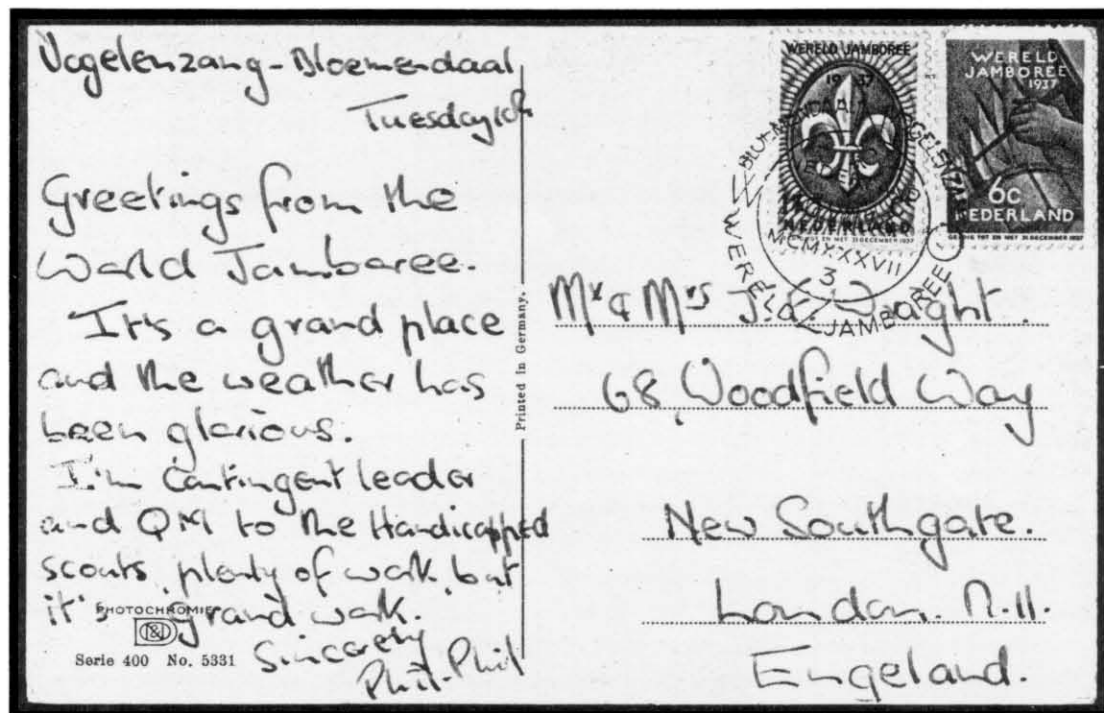 Vogelenzang - Bloemendaal
Tuesday 10th
Greetings from the
World Jamboree.
It's a grand place
and the weather has
been glorious.
I'm Contingent leader
and QM to the Handicapped
scouts, plenty of work, but
it's grand work.
Sincerely
Phil. Phil
PHOTOCHROMIE
Serie 400 No. 5331
Printed in Germany.
WERELD JAMBOREE
1937
NEDERLAND
WERELD
JAMBOREE
1937
6C
NEDERLAND
MCMXXXVII
3
WERELD JAMBOREE
Mr & Mrs J.A. Waght.
68, Woodfield Way
New Southgate.
London. N.11.
Engeland.